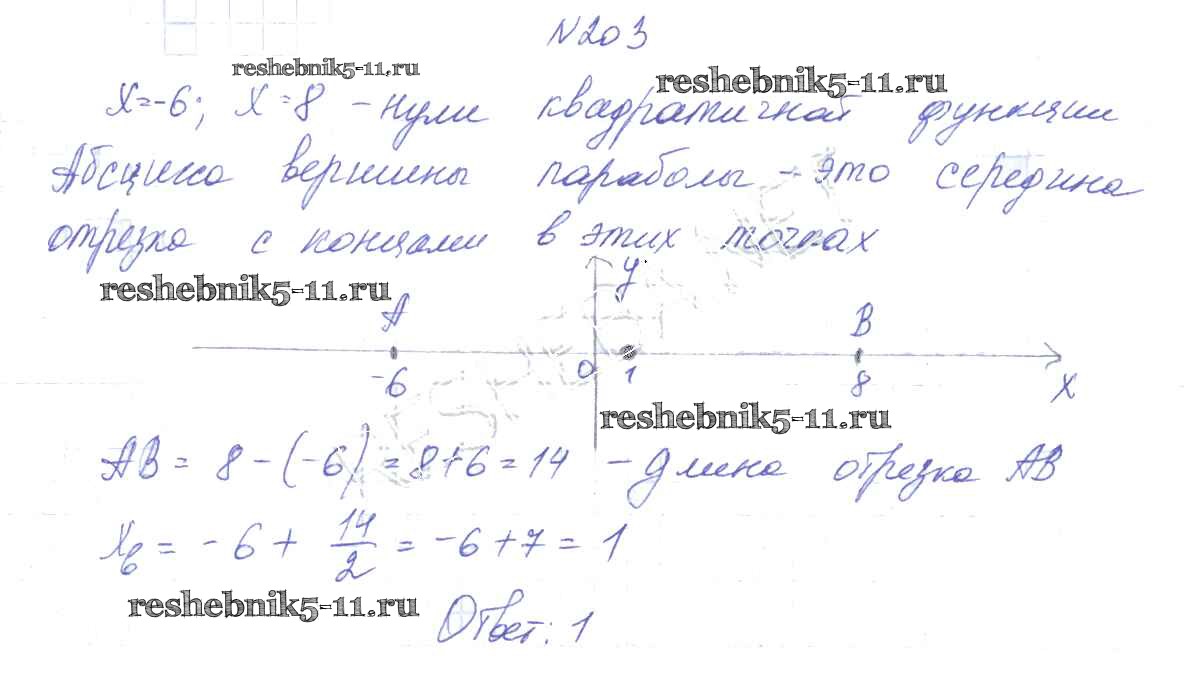 N203
reshebnik5-11.ru
reshebnik5-11.ru
X=-6; X=8 - нули квадратичной функции
Абсциса вершины параболы - это середина
отрезка с концами в этих точках
reshebnik5-11.ru
y
A
B
-6
0
1
8
X
reshebnik5-11.ru
AB = 8 - (-6) = 8+6 = 14 - длина отрезка AB
Xв = -6 + 14/2 = -6 + 7 = 1
reshebnik5-11.ru
Ответ: 1